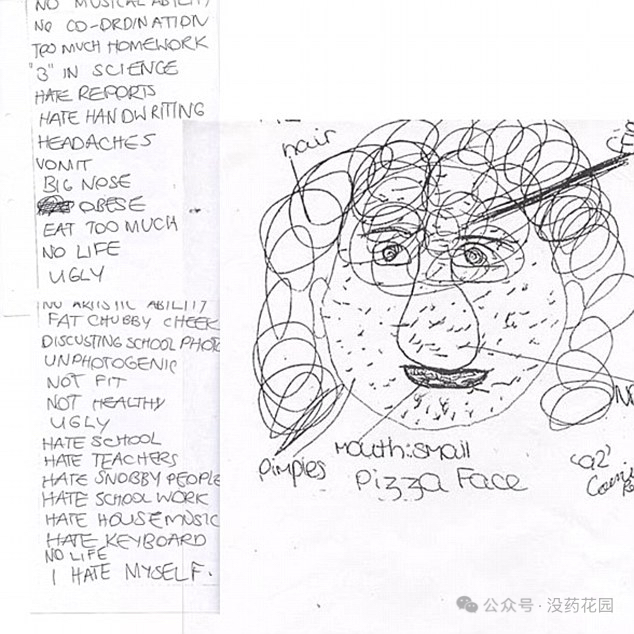 NO MUSICAL ABILITY
NO CO-ORDINATION
TOO MUCH HOMEWORK
"3" IN SCIENCE
HATE REPORTS
HATE HANDWRITING
HEADACHES
VOMIT
BIG NOSE
OBESE
EAT TOO MUCH
NO LIFE
UGLY
NO ARTISTIC ABILITY
FAT CHUBBY CHEEK
DISCUSTING SCHOOL PHOTO
UNPHOTOGENIC
NOT FIT
NOT HEALTHY
UGLY
HATE SCHOOL
HATE TEACHERS
HATE SNOBBY PEOPLE
HATE SCHOOL WORK
HATE HOUSE MUSIC
HATE KEYBOARD
NO LIFE
I HATE MYSELF.
hair
pimples
mouth:small
Pizza Face
公众号·没药花园